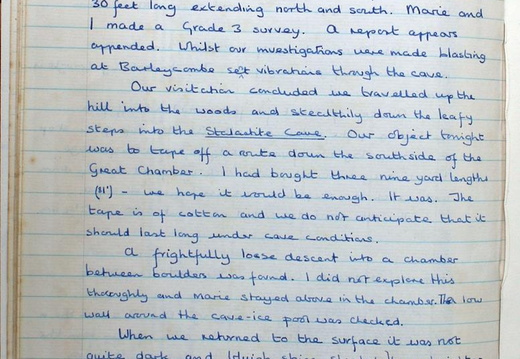 30 feet long extending north and south. Marie and
I made a Grade 3 survey. A report appears
appended. Whilst our investigations were made blasting
at Barleycombe set vibrations through the cave.
Our visitation concluded we travelled up the
hill into the woods and stealthily down the leafy
steps into the Stalactite Cave. Our object tonight
was to tape off a route down the southside of the
Great Chamber. I had bought three nine yard lengths
– we hope it would be enough. It was. The
tape is of cotton and we do not anticipate that it
should last long under cave conditions.
A frightfully loose descent into a chamber
between boulders was found. I did not explore this
thoroughly and Marie stayed above in the chamber. The low
wall around the cave-ice pool was checked.
When we returned to the surface it was not
quite dark and